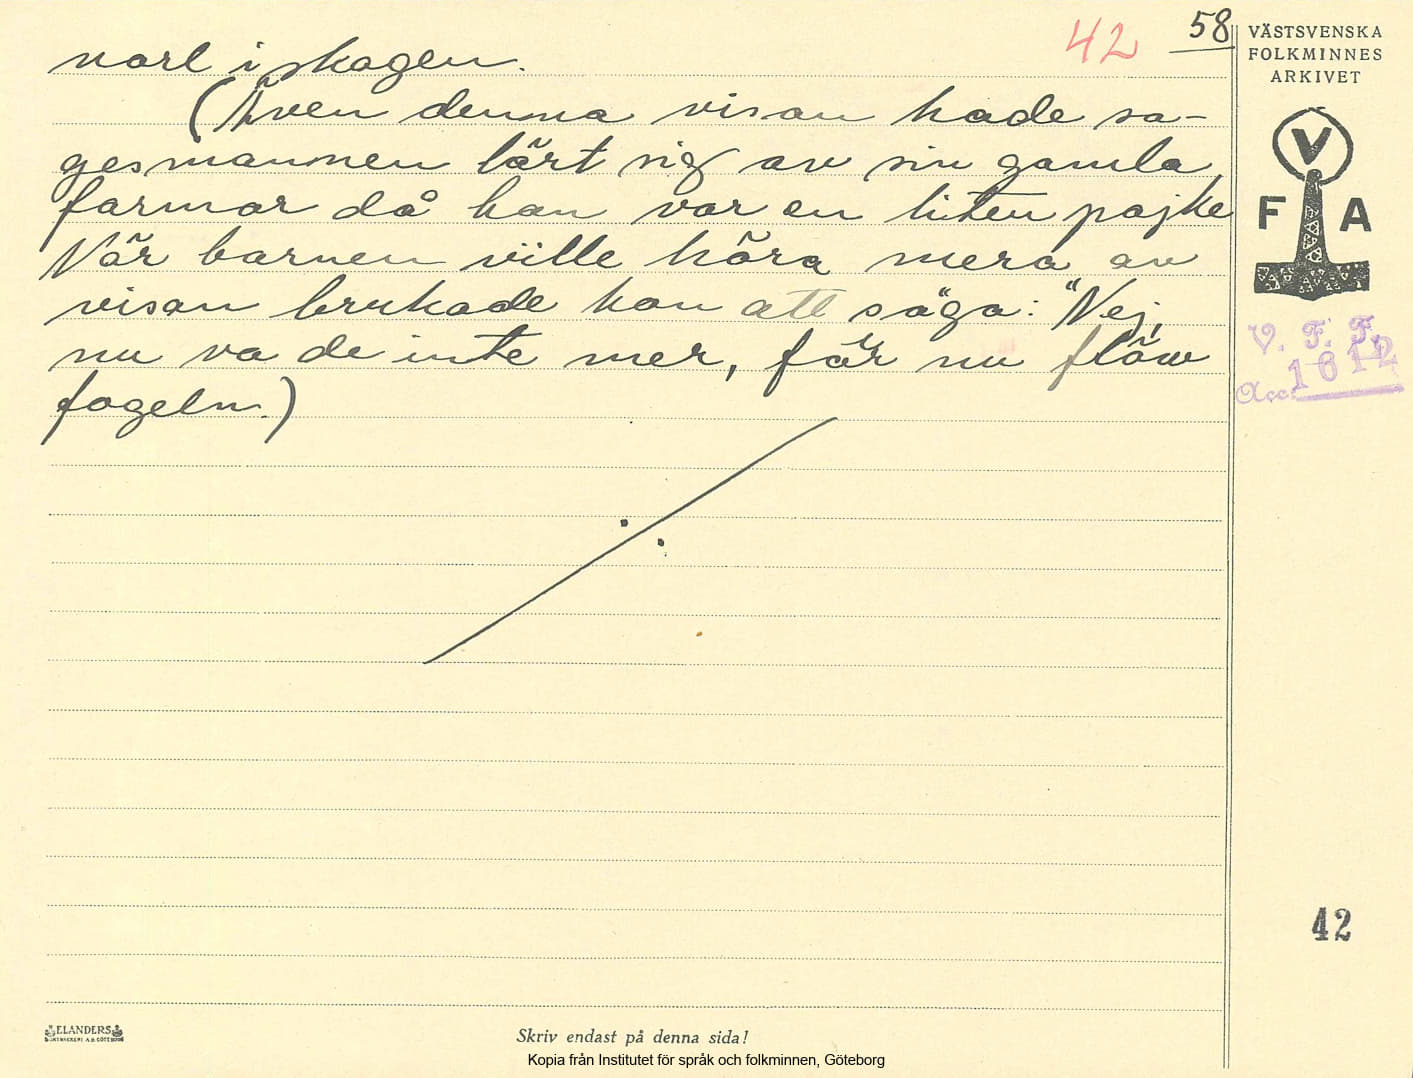 42 58
norl i skogen.
(Även denna visan hade sa-
gesmannen lärt sig av sin gamla
farmor då han var en liten pojke
När barnen ville höra mera av
visan brukade hon att säga: "Nej,
nu va de inte mer, för nu flöw
fogeln.)
VÄSTSVENSKA
FOLKMINNES
ARKIVET
V
F A
V. F. F.
Acc. 1612
42
ELANDERS
Skriv endast på denna sida!
Kopia från Institutet för språk och folkminnen, Göteborg